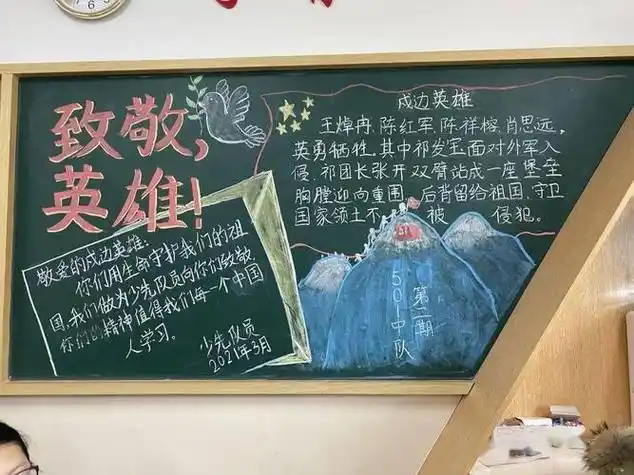 致敬,
英雄!
敬爱的戍边英雄:
你们用生命守护我们的祖
国,我们做为少先队员向你们致敬
你们的精神值得我们每一个中国
人学习。
少先队员
2021年3月
戍边英雄
王焯冉、陈红军、陈祥榕、肖思远,
英勇牺牲。其中祁发宝面对外军入
侵,祁团长张开双臂站成一座堡垒
胸膛迎向重围,后背留给祖国,守卫
国家领土不 被 侵犯。
501中队
第二期
6